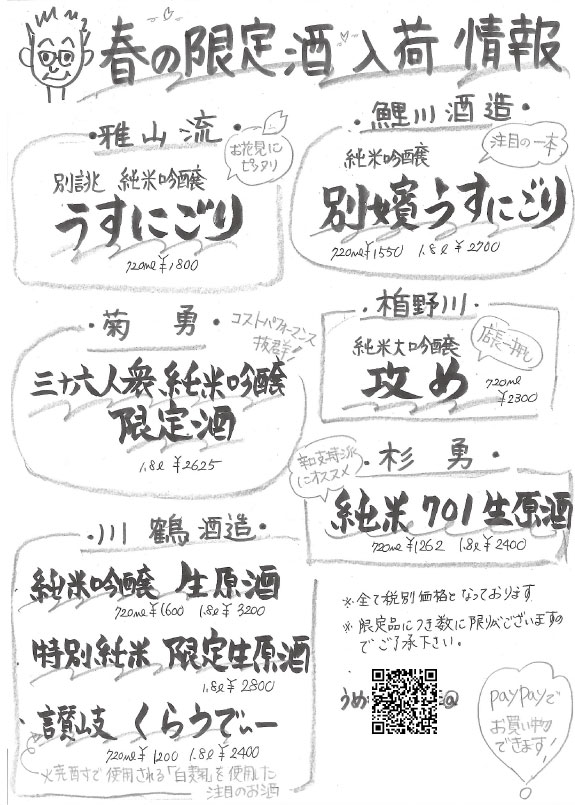 春の限定酒入荷情報
・雅山流・
お花見に
ピッタリ
別誂 純米吟醸
うすにごり
720ml ¥1800
・鯉川酒造・
注目の一本
純米吟醸
別嬪うすにごり
720ml ¥1550 1.8ℓ ¥2700
・菊勇・
コストパフォーマンス
抜群!
三十六人衆 純米吟醸
限定酒
1.8ℓ ¥2625
・楯野川・
店長一押し
純米大吟醸
攻め
720ml
¥2300
・杉勇・
辛口支持派
にオススメ
純米 701 生原酒
720ml ¥1262 1.8ℓ ¥2400
・川鶴酒造・
純米吟醸 生原酒
720ml ¥1600 1.8ℓ ¥3200
特別純米 限定生原酒
1.8ℓ ¥2800
讃岐くらうでぃー
720ml ¥1200 1.8ℓ ¥2400
焼酎で使用される「白麹」を使用した
注目のお酒
※全て税別価格となっております
※限定品につき数に限りがございますの
でご了承下さい。
うめ
@
PayPayで
お買い物
できます!